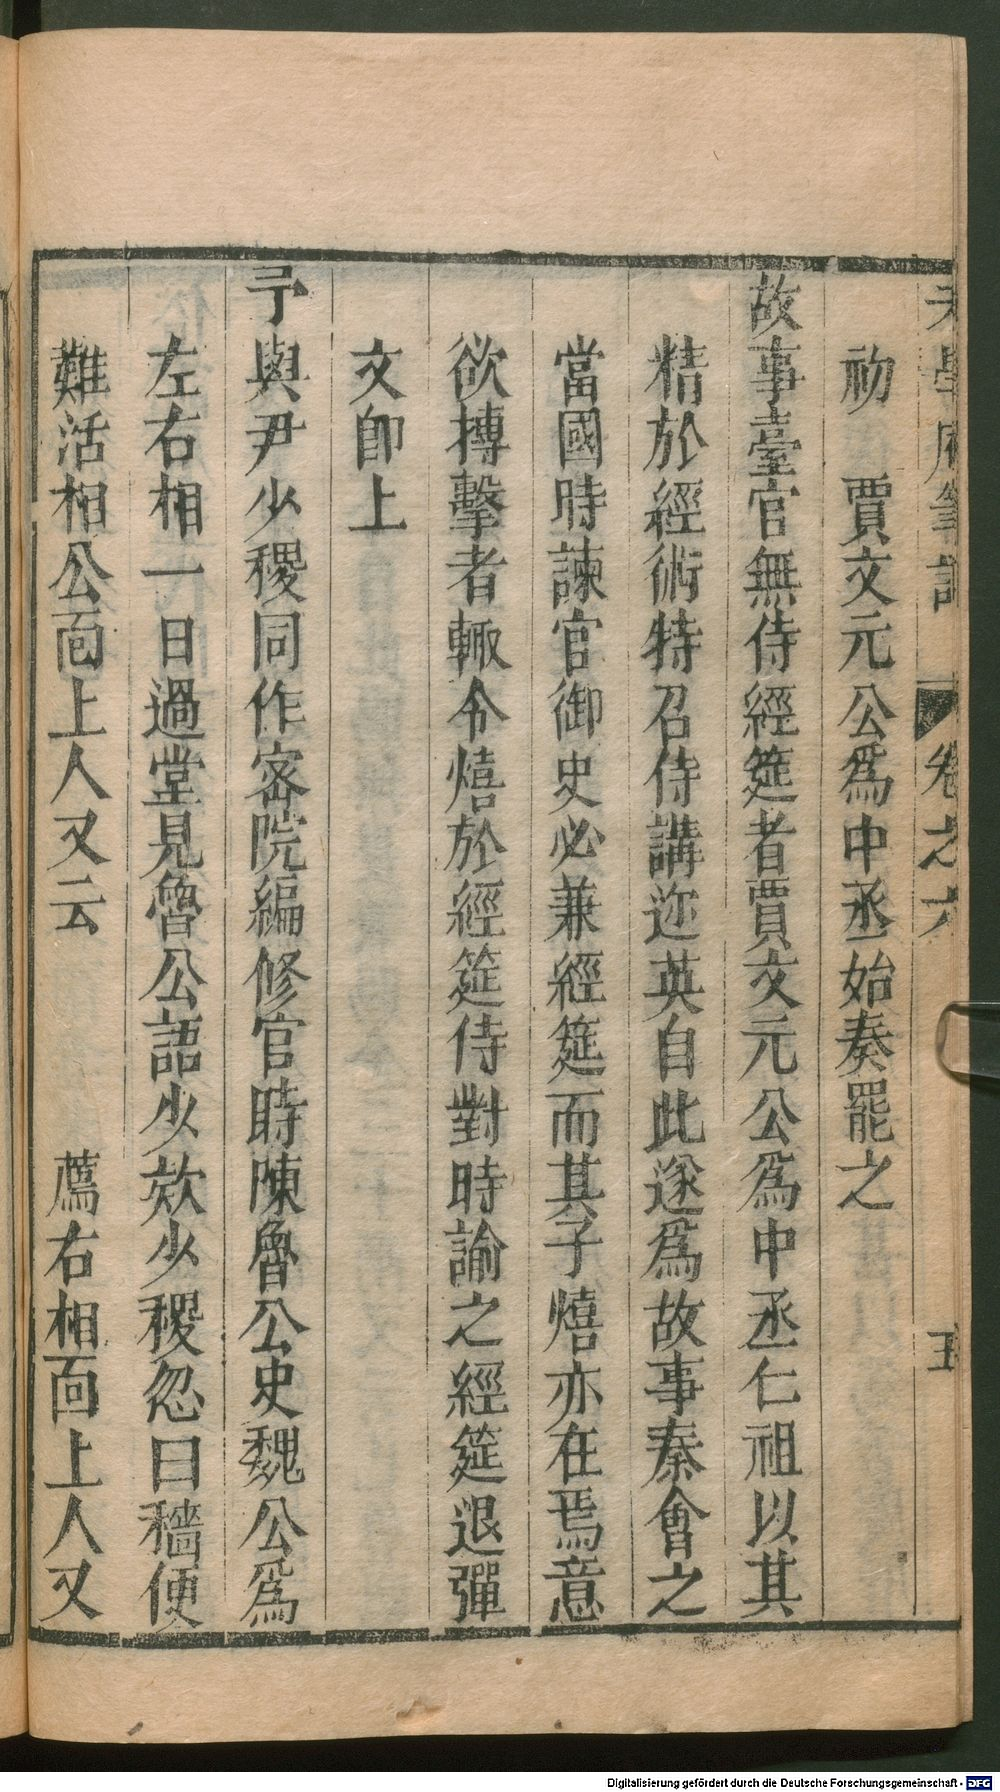 老學庵筆記 卷之六 五
初 賈文元公爲中丞始奏罷之
故事臺官無侍經筵者賈文元公爲中丞仁祖以其
精於經術特召侍講迩英自此遂爲故事秦會之
當國時諫官御史必兼經筵而其子熺亦在焉意
欲搏擊者輒令熺於經筵侍對時諭之經筵退彈
文卽上
予與尹少稷同作密院編修官時陳魯公史魏公爲
左右相一日過堂見魯公語少欬少稷忽曰穡便
難活相公面上人又云 薦右相面上人又
Digitalisierung gefördert durch die Deutsche Forschungsgemeinschaft - DFG